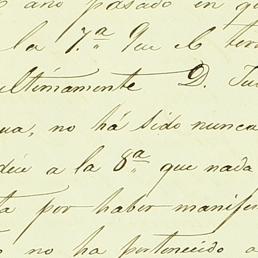 año pasado en q
la 7.ª Que el ter
ultimamente D. Ju
ua, no há sido nunca
déce a la 8ª que nada
ta por haber manife
no ha pertenecido a